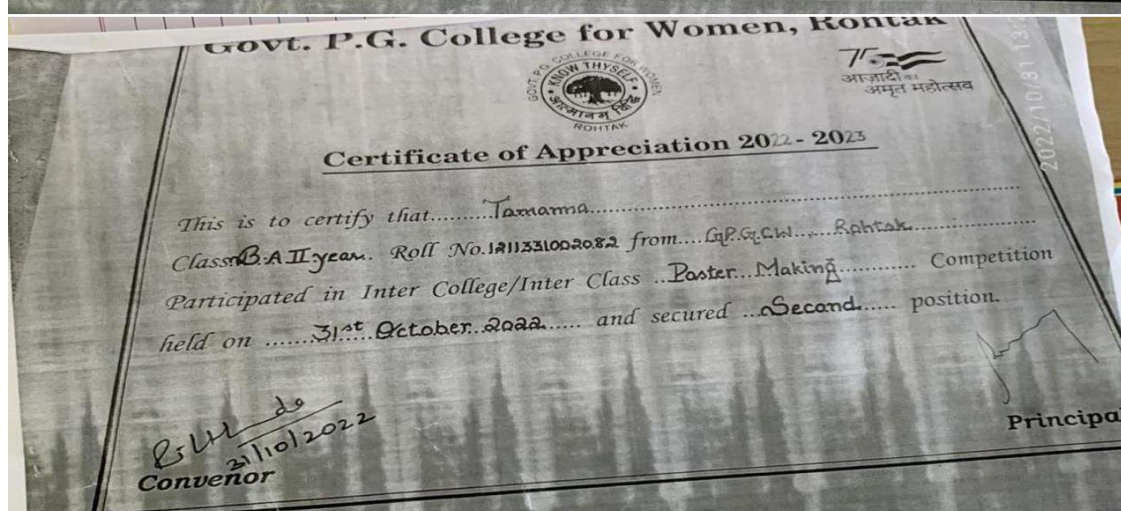 Govt. P.G. College for Women, Rohtak
GOVT. P.G. COLLEGE FOR WOMEN
KNOW THYSELF
आत्मानम् विद्धि
ROHTAK
75
आज़ादी का
अमृत महोत्सव
Certificate of Appreciation 2022 - 2023
This is to certify that.........Tamanna..........
Class B.A II year. Roll No. 1211331002082 from....G.P.G.CW.....Rohtak..........
Participated in Inter College/Inter Class ..Poster...Making.......... Competition
held on .......31st October 2022...... and secured ...Second..... position.
31/10/2022
Convenor
Principal